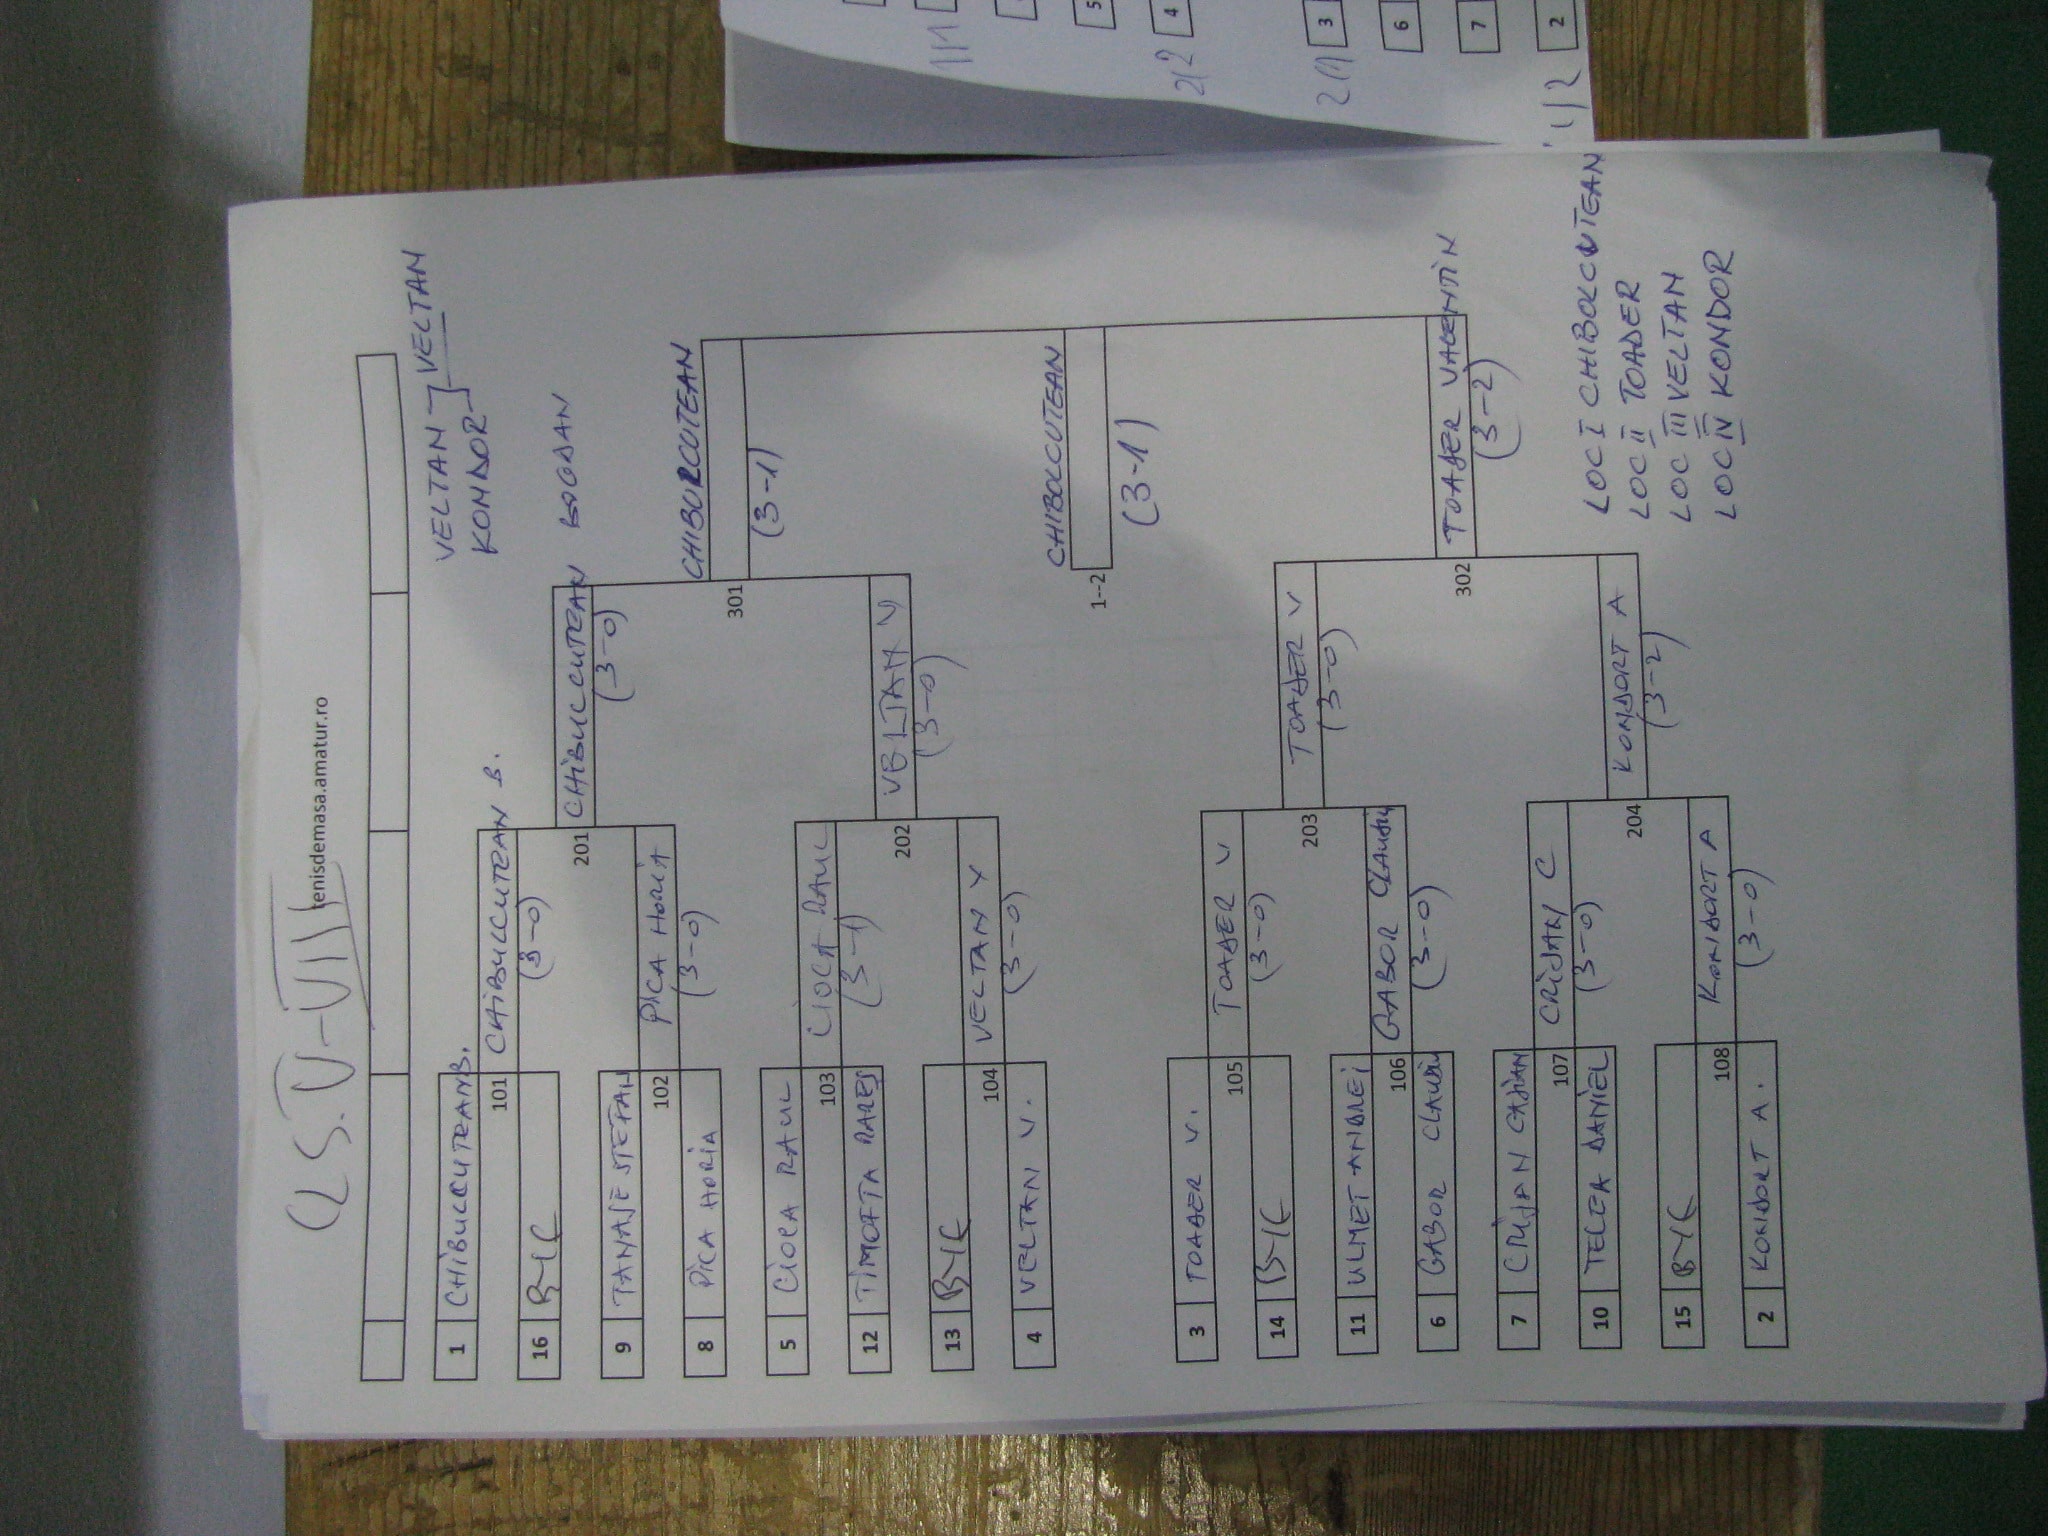 CLS. V-VIII
tenisdemasa.amatur.ro
VELTAN
KONDOR
VELTAN
1 CHIBULCUTEAN B.
101
16 BYE
CHIBULCUTEAN B.
(3-0)
9 TANASE STEFAN
102
8 PICA HORIA
PICA HORIA
(3-0)
201
CHIBULCUTEAN BOGDAN
(3-0)
5 CIOCA RAUL
103
12 TIMOFTA RARES
CIOCA RAUL
(3-1)
13 BYE
104
4 VELTAN V.
VELTAN V
(3-0)
202
VELTAN V
(3-0)
301
CHIBURCUTEAN
(3-1)
CHIBOLCUTEAN
1--2
(3-1)
3 TOADER V.
105
14 BYE
TOADER V
(3-0)
11 ULMET ANDREI
106
6 GABOR CLAUDIU
GABOR CLAUDIU
(3-0)
203
TOADER V
(3-0)
7 CRISAN
107
10 TELEA DANIEL
CRISAN C
(3-0)
15 BYE
108
2 KONDORT A.
KONDORT A
(3-0)
204
KONDORT A
(3-2)
302
TOADER VALENTIN
(3-2)
LOC I CHIBOLCUTEAN
LOC II TOADER
LOC III VELTAN
LOC IV KONDOR
1/1
5
2/2 4
2/1 3
6
7
1/2 2